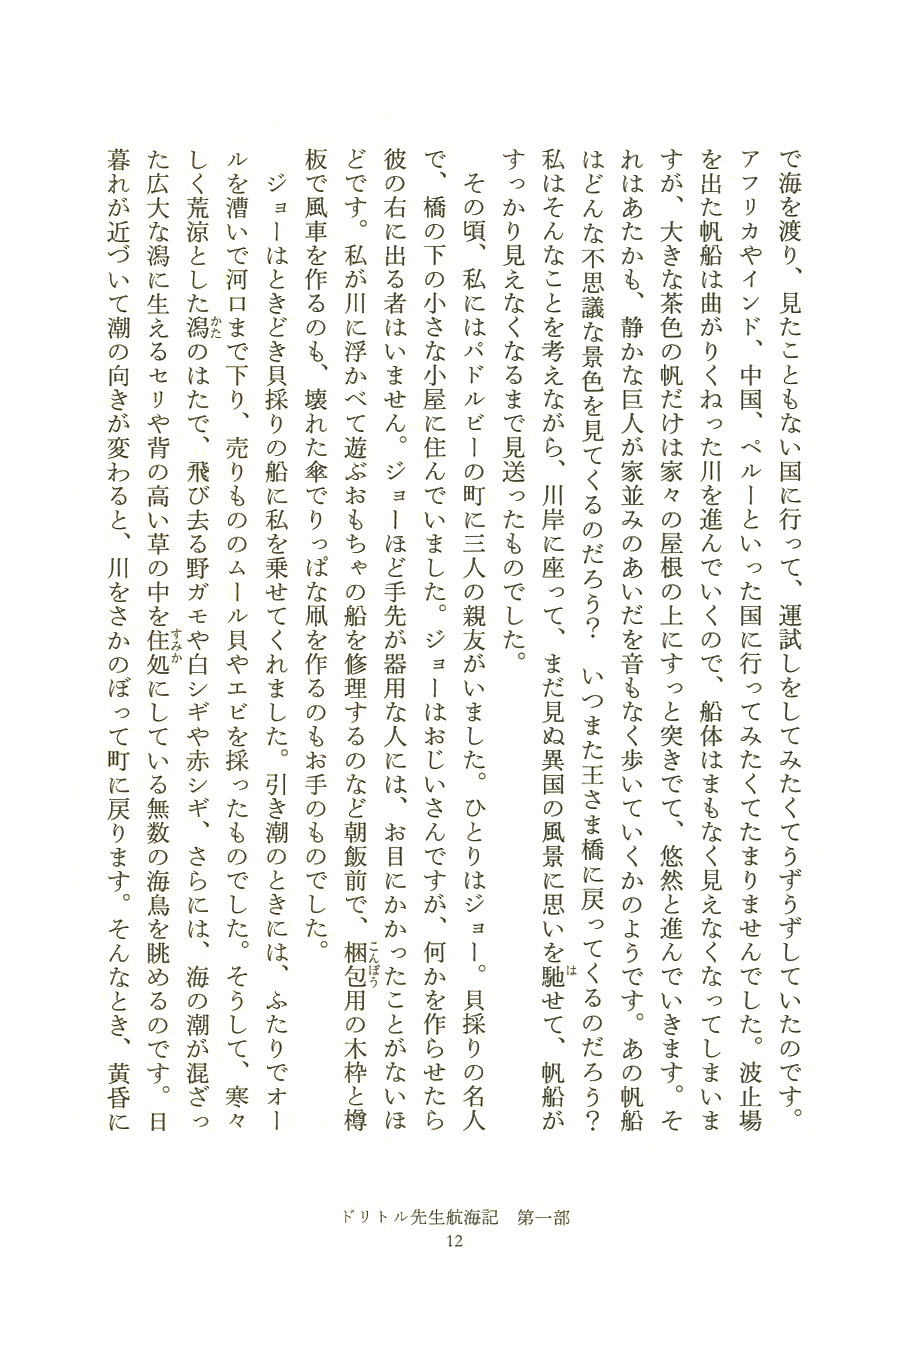 で海を渡り、見たこともない国に行って、運試しをしてみたくてうずうずしていたのです。
アフリカやインド、中国、ペルーといった国に行ってみたくてたまりませんでした。波止場
を出た帆船は曲がりくねった川を進んでいくので、船体はまもなく見えなくなってしまいま
すが、大きな茶色の帆だけは家々の屋根の上にすっと突きでて、悠然と進んでいきます。そ
れはあたかも、静かな巨人が家並みのあいだを音もなく歩いていくかのようです。あの帆船
はどんな不思議な景色を見てくるのだろう？　いつまた王さま橋に戻ってくるのだろう？
私はそんなことを考えながら、川岸に座って、まだ見ぬ異国の風景に思いを馳せて、帆船が
すっかり見えなくなるまで見送ったものでした。
　その頃、私にはパドルビーの町に三人の親友がいました。ひとりはジョー。貝採りの名人
で、橋の下の小さな小屋に住んでいました。ジョーはおじいさんですが、何かを作らせたら
彼の右に出る者はいません。ジョーほど手先が器用な人には、お目にかかったことがないほ
どです。私が川に浮かべて遊ぶおもちゃの船を修理するのなど朝飯前で、梱包用の木枠と樽
板で風車を作るのも、壊れた傘でりっぱな凧を作るのもお手のものでした。
　ジョーはときどき貝採りの船に私を乗せてくれました。引き潮のときには、ふたりでオー
ルを漕いで河口まで下り、売りもののムール貝やエビを採ったものでした。そうして、寒々
しく荒涼とした潟のはたで、飛び去る野ガモや白シギや赤シギ、さらには、海の潮が混ざっ
た広大な潟に生えるセリや背の高い草の中を住処にしている無数の海鳥を眺めるのです。日
暮れが近づいて潮の向きが変わると、川をさかのぼって町に戻ります。そんなとき、黄昏に
ドリトル先生航海記　第一部
12